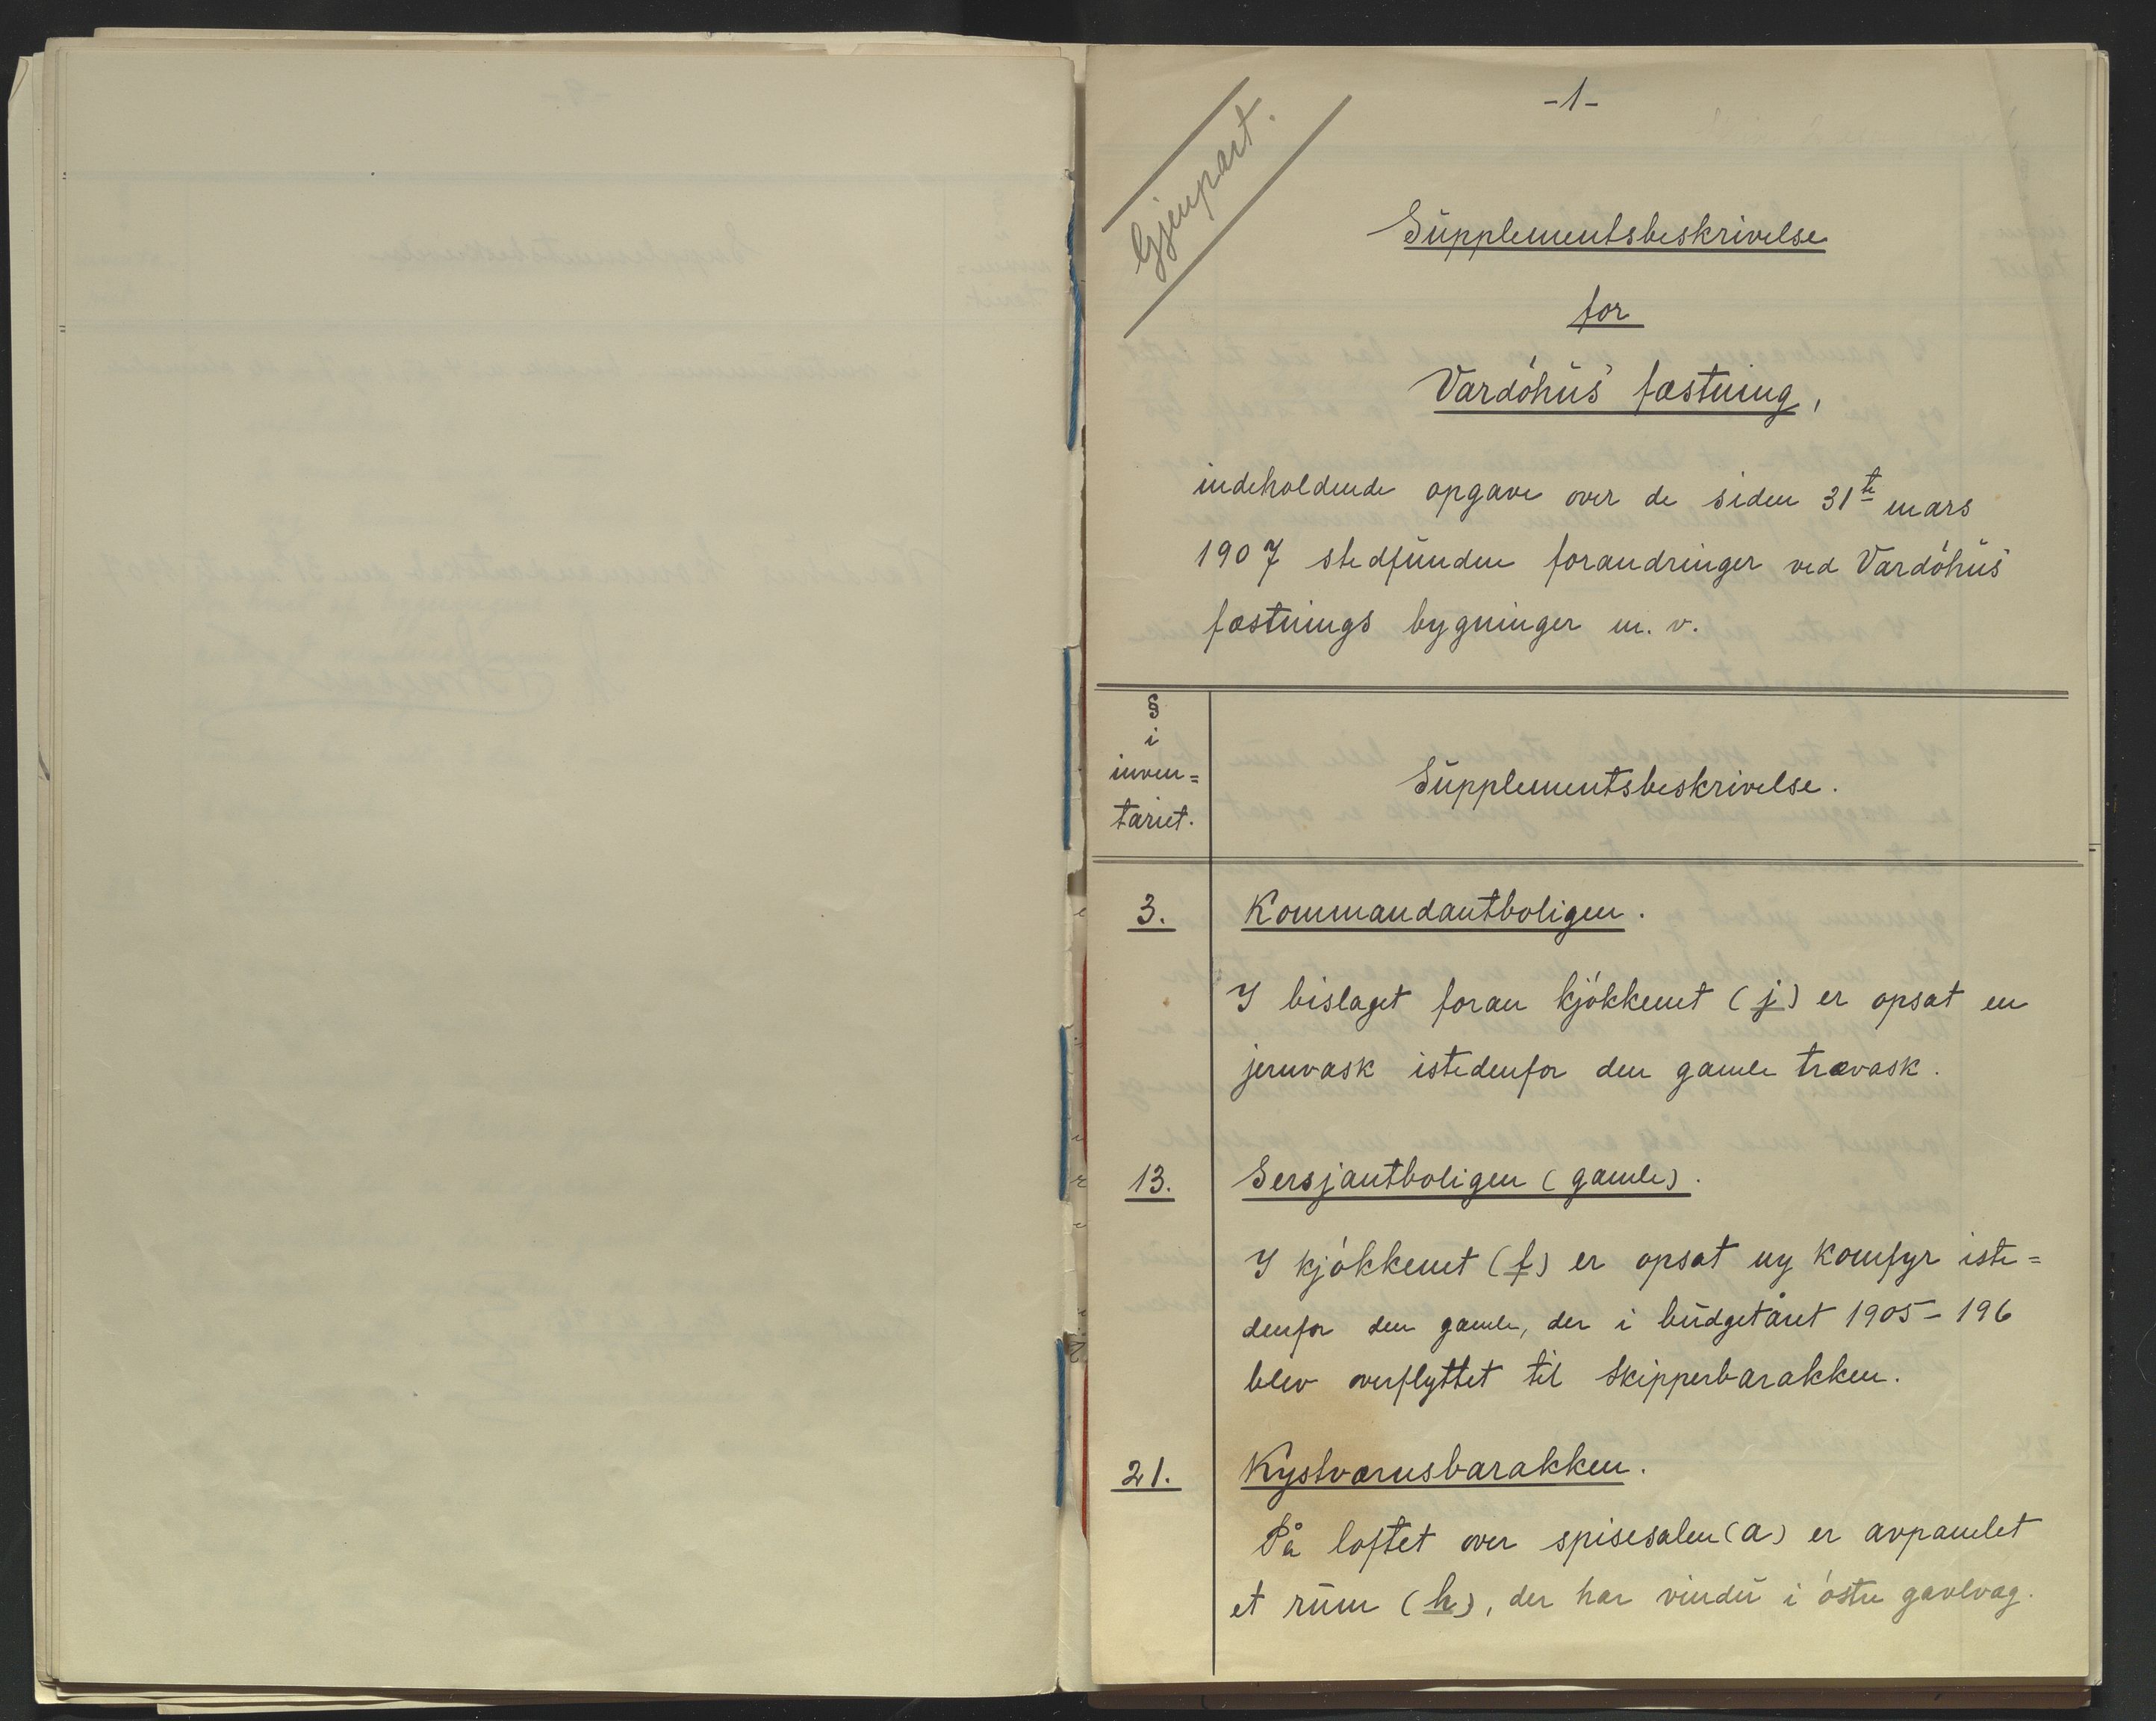 -1-
Gjenpart.
Supplementsbeskrivelse
for
Vardóhus fæstning,
indeholdende opgave over de siden 31te mars
1907 stedfundne forandringer ved Vardóhus
fæstnings bygninger m. v.
§
i
inven=
tariet.
Supplementsbeskrivelse.
3.
Kommandantboligen.
I bislaget foran kjókkenet (j) er opsat en
jernvask istedenfor den gamle trævask.
13.
Sersjantboligen (gamle).
I kjókkenet (f) er opsat ny komfyr iste=
denfor den gamle, der i budgetåret 1905-196
blev overflyttet til Skipperbarakken.
21.
Kystværnsbarakken.
På loftet over spisesalen (a) er avpanelet
et rum (h), der har vindu i óstre gavlvæg.